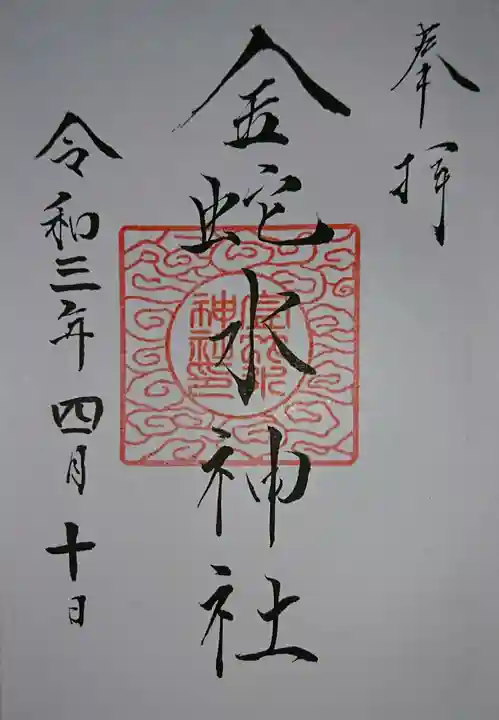 奉拝
金蛇水神社
令和三年四月十日